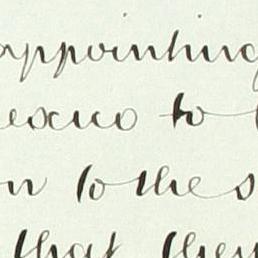 appointing
exico to
on to the s
that they